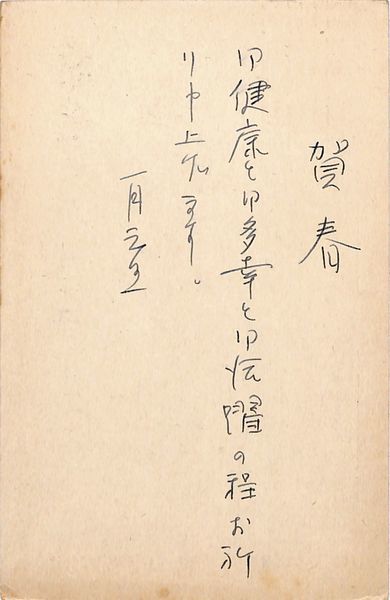 賀春
御健康と御多幸と御活躍の程お祈
り申上げます。
一月元旦